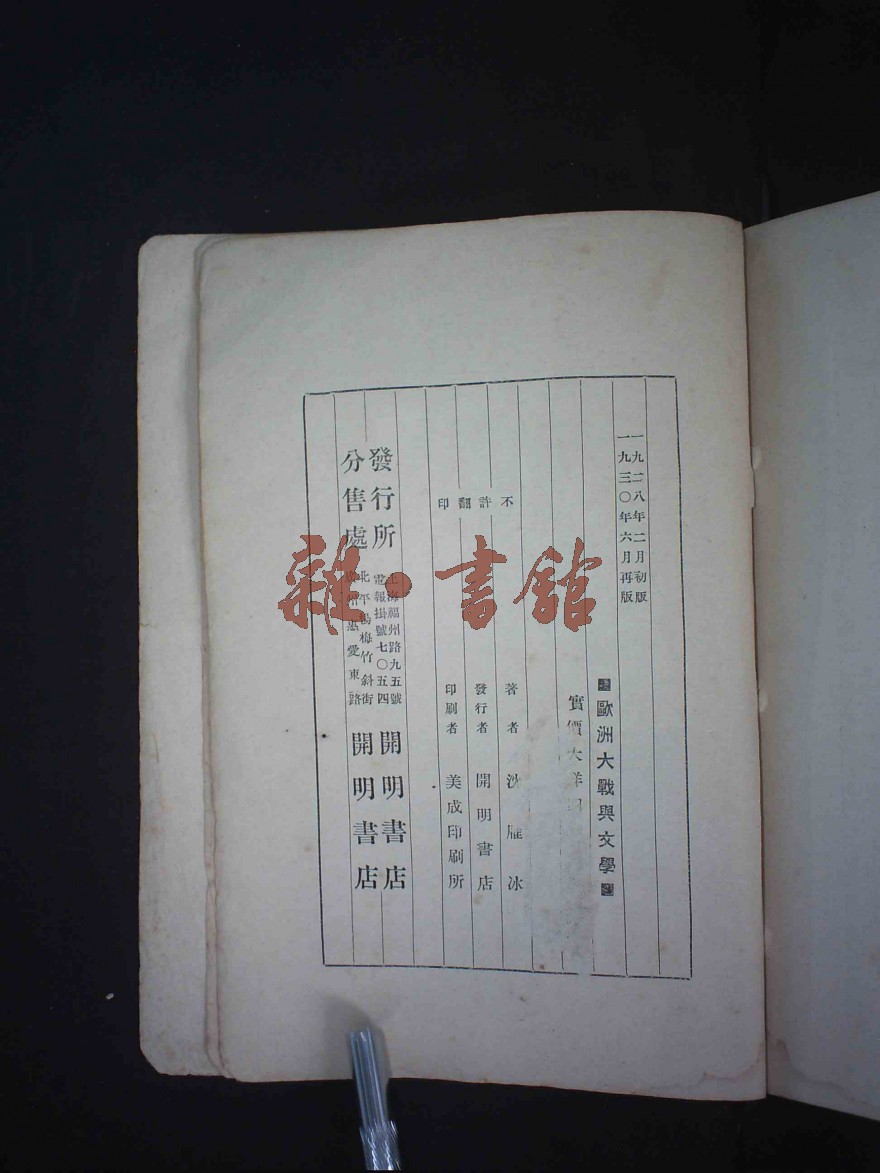 一九二八年二月初版
一九三〇年六月再版
歐洲大戰與文學
實價大洋
不許翻印
著者 沈雁冰
發行者 開明書店
印刷者 美成印刷所
發行所 上海福州路九五號 電報掛號七〇五四 開明書店
分售處 北平楊梅竹斜街 廣州惠愛東路 開明書店
雜·書館